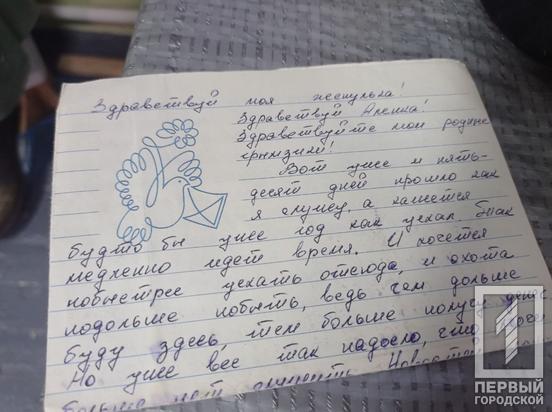 Здравствуй моя женулька!
Здравствуй Аленка!
Здравствуйте мои родные
грызуны!
Вот уже и пять-
десят дней прошло как
я служу, а кажется
будто бы уже год как уехал. Так
медленно идет время. И хочется
побыстрее уехать отсюда, и охота
подольше побыть, ведь чем дольше
буду здесь, тем больше получу денег
Но уже все так надоело, что
больше нет
ПЕРВЫЙ
ГОРОДСКОЙ